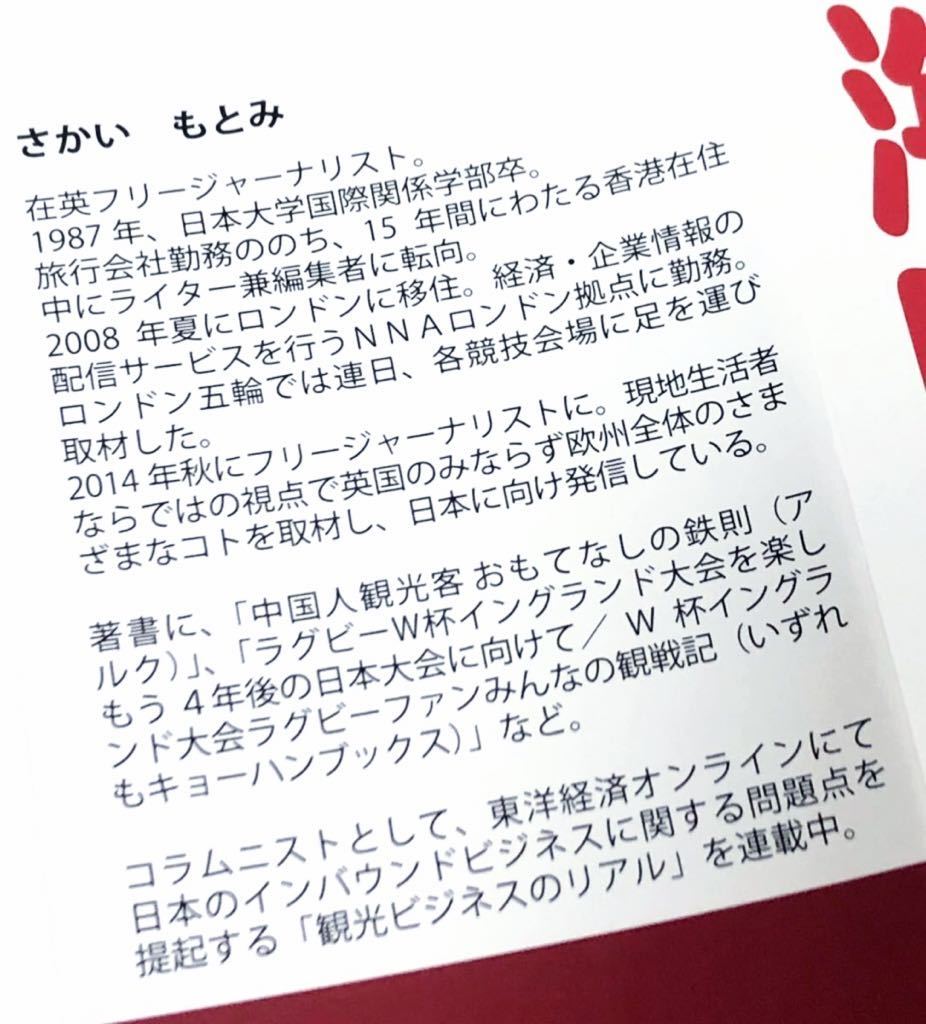 さかい　もとみ
在英フリージャーナリスト。
1987 年、日本大学国際関係学部卒。
旅行会社勤務ののち、15 年間にわたる香港在住
中にライター兼編集者に転向。
2008 年夏にロンドンに移住。経済・企業情報の
配信サービスを行うＮＮＡロンドン拠点に勤務。
ロンドン五輪では連日、各競技会場に足を運び
取材した。
2014 年秋にフリージャーナリストに。現地生活者
ならではの視点で英国のみならず欧州全体のさま
ざまなコトを取材し、日本に向け発信している。
著書に、「中国人観光客 おもてなしの鉄則（ア
ルク）」、「ラグビーW杯イングランド大会を楽し
もう 4 年後の日本大会に向けて／ W 杯イングラ
ンド大会ラグビーファンみんなの観戦記（いずれ
もキョーハンブックス）」など。
コラムニストとして、東洋経済オンラインにて
日本のインバウンドビジネスに関する問題点を
提起する「観光ビジネスのリアル」を連載中。